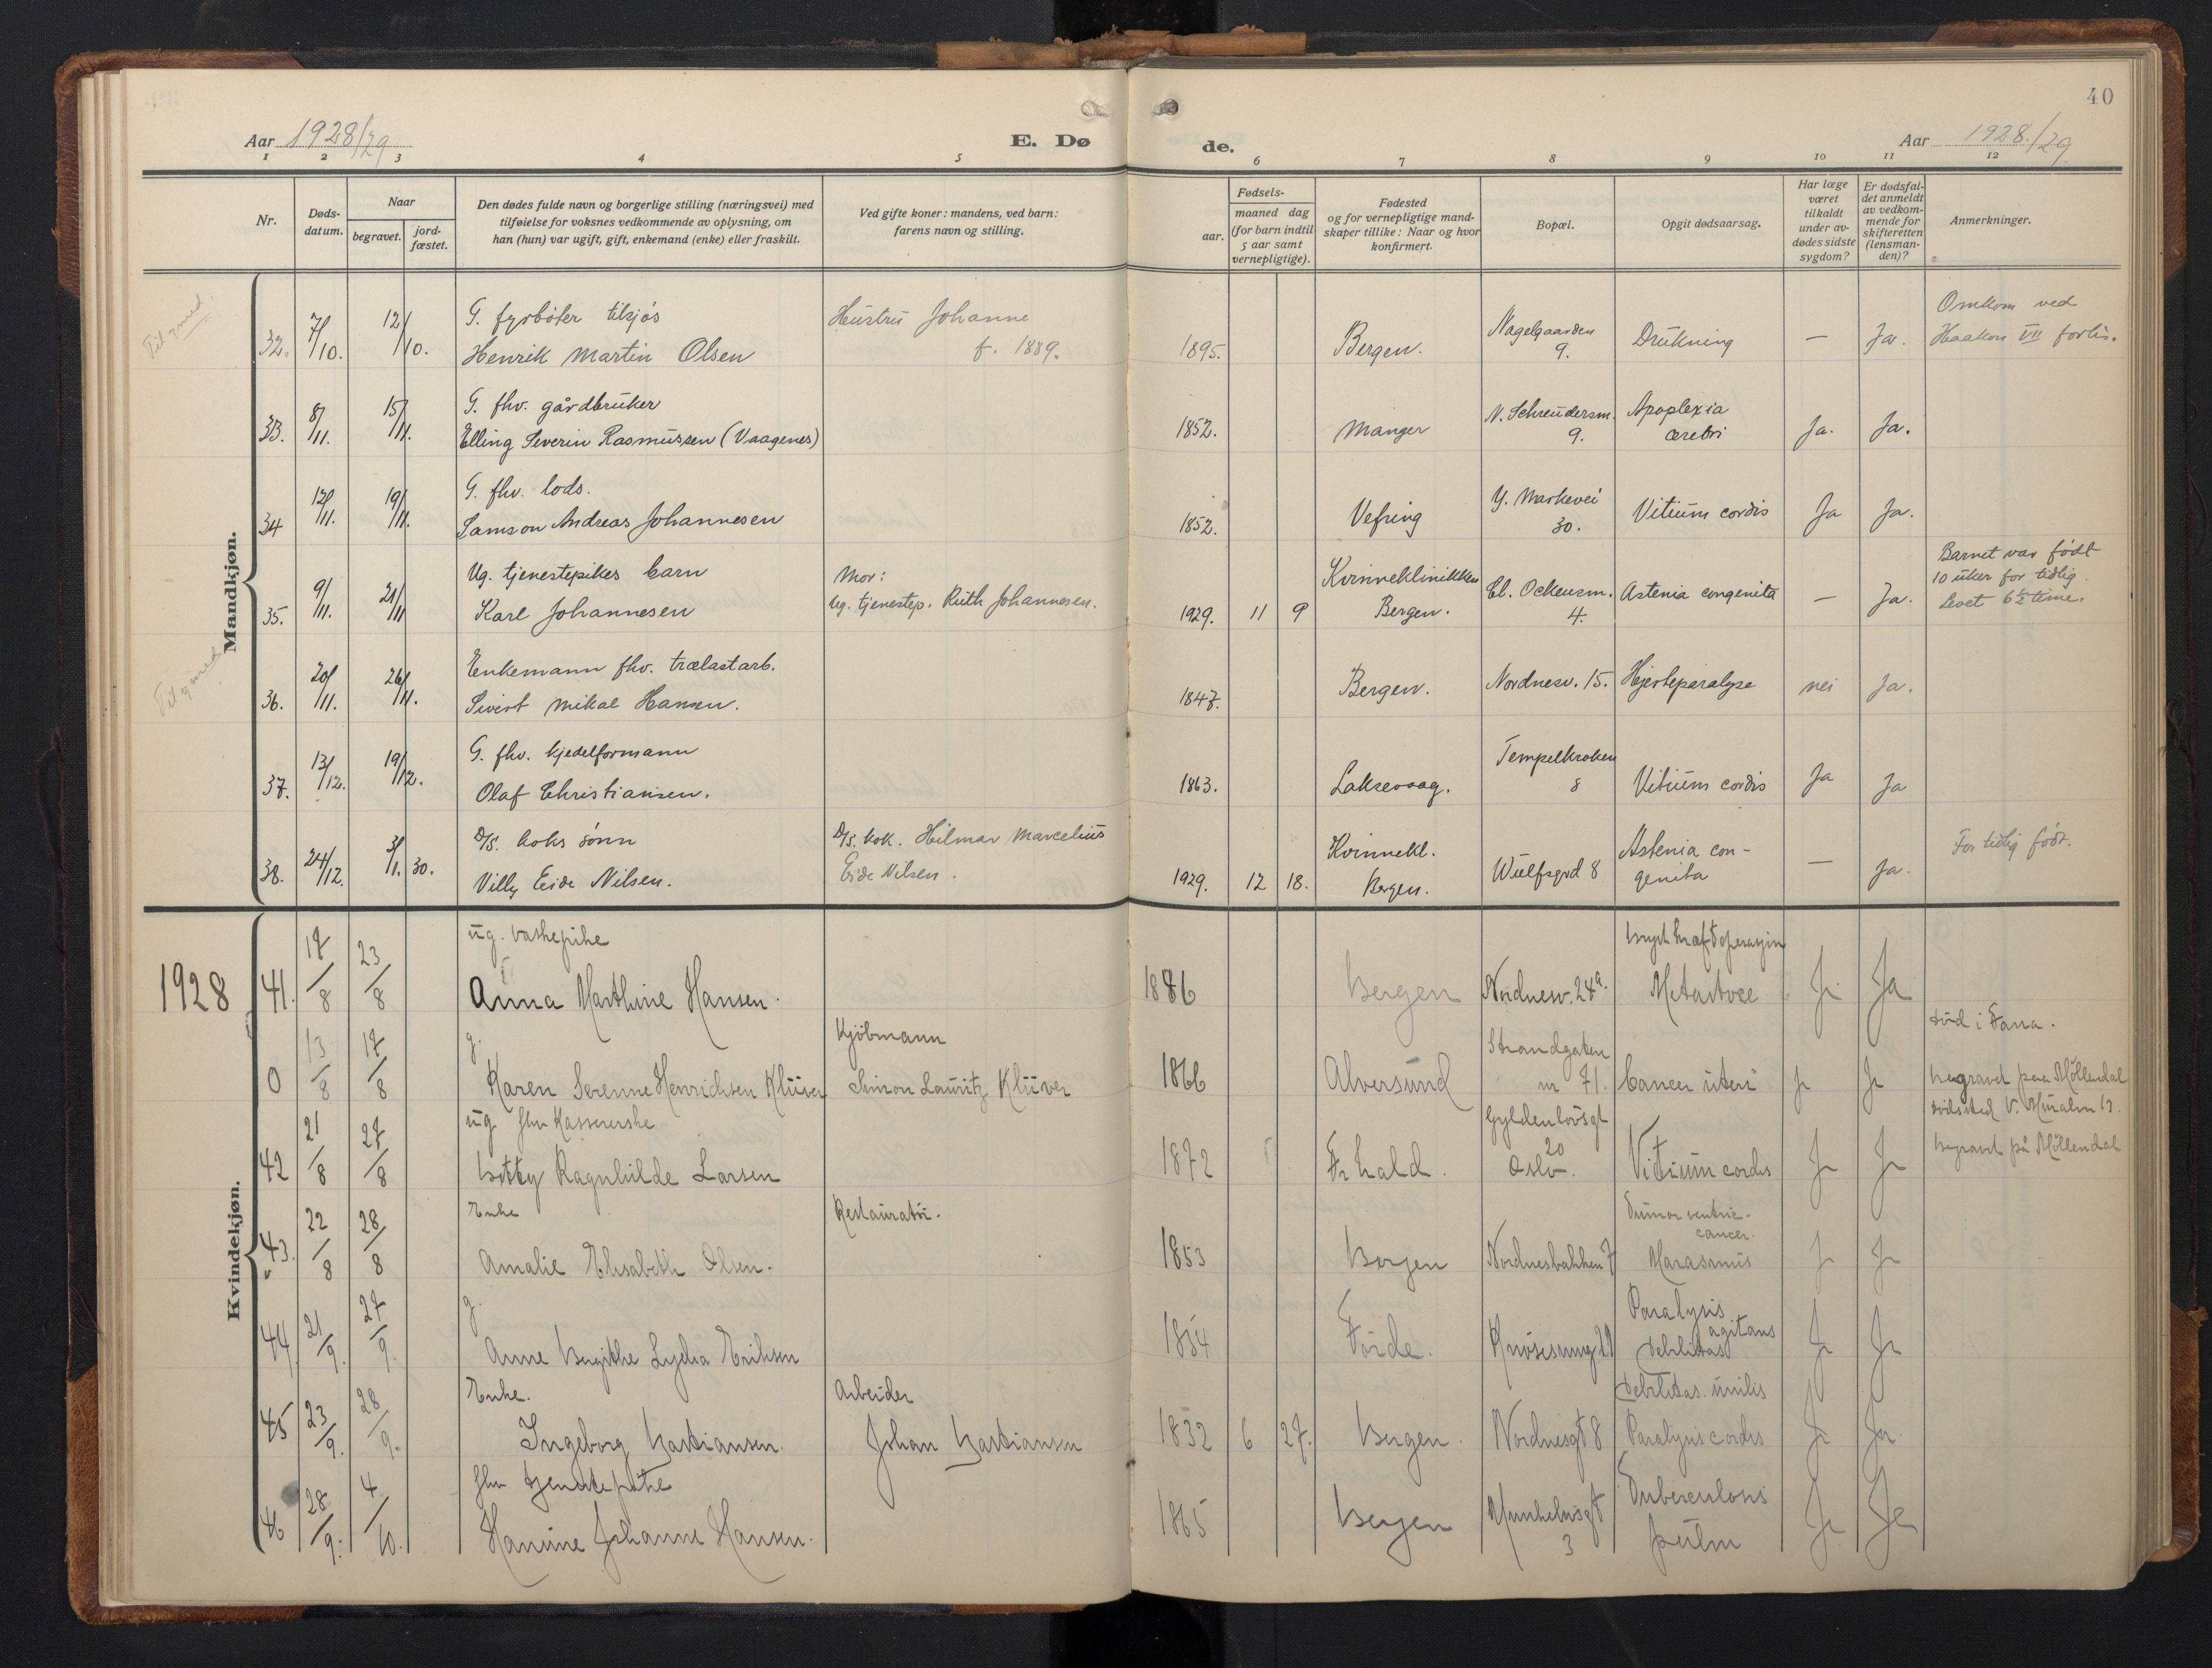 40
Aar 1928/29
E. Dø
de.
Aar 1928/29
1 2 3 4 5 6 7 8 9 10 11 12
Nr.
Døds-
datum.
Naar
begravet.
jord-
fæstet.
Den dødes fulde navn og borgerlige stilling (næringsvei) med
tilføielse for voksnes vedkommende av oplysning, om
han (hun) var ugift, gift, enkemand (enke) eller fraskilt.
Ved gifte koner: mandens, ved barn:
farens navn og stilling.
Fødsels-
aar.
maaned dag
(for barn indtil
5 aar samt
vernepligtige).
Fødested
og for vernepligtige mand-
skaper tillike: Naar og hvor
konfirmert.
Bopæl.
Opgit dødsaarsag.
Har læge
været
tilkaldt
under av-
dødes sidste
sygdom?
Er dødsfal-
det anmeldt
av vedkom-
mende for
skifteretten
(lensman-
den)?
Anmerkninger.
Mandkjøn.
32. 7/10. 12/10. G. fyrbøter tilsjøs
Henrik Martin Olsen
Hustru Johanne
f. 1889.
1895. Bergen. Nagelgaarden
9.
Drukning — Ja.
Omkom ved
Haakon VII forlis.
33. 8/11. 15/11. G. fhv. gårdbruker
Elling Severin Rasmussen (Vaagenes)
1852. Manger N. Schreudersm.
9.
Apoplexia
cerebri
Ja. Ja.
34 12/11. 19/11. G. fhv. lods.
Samson Andreas Johannesen
1852. Vefring Y. Markevei
30.
Vitium cordis Ja Ja.
35. 9/11. 21/11 Ug. tjenestepikes barn
Karl Johannesen
Mor:
Ug. tjenestep. Ruth Johannesen.
1929. 11 9 Kvinneklinikken
Bergen.
Cl. Ockensm.
4.
Astenia congenita — Ja.
Barnet var født
10 uker for tidlig.
Levet 6½ time.
36. 20/11. 26/11. Enkemann fhv. trælastarb.
Sivert Mikal Hansen.
1847. Bergen. Nordnesv. 15. Hjerteparalyse nei Ja.
37. 13/12. 19/12. G. fhv. kjedelformann
Olaf Christiansen.
1863. Laksevaag. Tempelkroken
8
Vitium cordis Ja Ja
38. 24/12. 3/1. 30. D/S. koks sønn
Villy Eide Nilsen.
D/S. kok. Hilmar Marcelius
Eide Nilsen.
1929. 12 18. Kvinnekl.
Bergen.
Wulfsgrd 8
Astenia con-
genita
— Ja.
For tidlig født.
Kvindekjøn.
1928
41. 17/8 23/8 ug. vaskepike
Anna Marthine Hansen.
1886 Bergen Nordnesv. 24a.
Ja Ja
0 13/8 17/8 g.
Karen Serenne Henrichsen Klüver
Kjøbmann
Simon Lauritz Klüver
1866 Alversund Strandgaten
nr 71.
Cancer uteri Ja Ja
død i Fana.
begravet paa Møllendal
42 21/8 27/8 ug fhv Kassererske
Betty Ragnhilde Larsen
1872 Fr.hald. Gyldenløvsgt
20
Oslo.
Vitium cordis Ja Ja
begravet på Møllendal
43. 22/8 28/8 Enke
Amalie Elisabeth Olsen.
Restauratør.
1853 Bergen Nordnesbakken 7
Tumor ventric-
cancer.
Marasmus
Ja Ja
44 21/9. 27/9. g.
Anne Birgithe Lydia Eriksen
1854 Førde.
Paralysis
agitans
Debilitas
Ja Ja
45 23/9. 28/9. Enke.
Ingeborg Bastiansen.
Arbeider
Johan Bastiansen
1832 6 27. Bergen. Nordnesgt 8
Debilitas. senilis
Paralysis cordis
Ja Ja
46 28/9. 4/10. fhv tjenestepike
Hanine Johanne Hansen.
1865 Bergen Munkelivsgt
3
Tuberculosis
pulm
Ja Ja